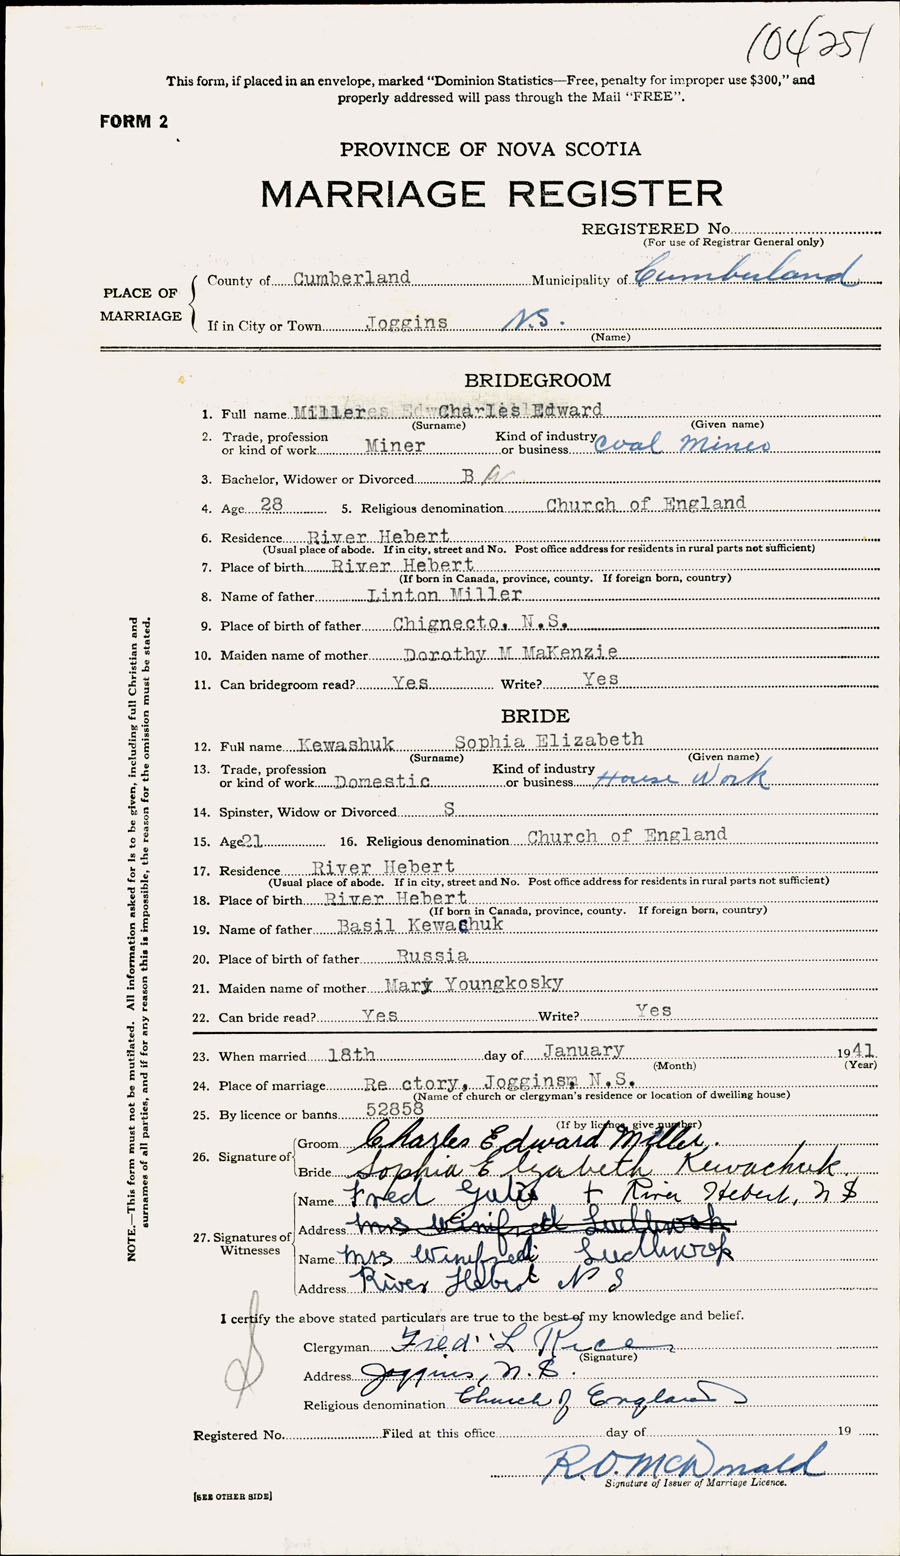 104251
This form, if placed in an envelope, marked "Dominion Statistics—Free, penalty for improper use $300," and
properly addressed will pass through the Mail "FREE".
FORM 2
PROVINCE OF NOVA SCOTIA
MARRIAGE REGISTER
REGISTERED No.
(For use of Registrar General only)
PLACE OF MARRIAGE
County of Cumberland Municipality of Cumberland
If in City or Town Joggins N.S.
(Name)
BRIDEGROOM
1. Full name Miller Charles Edward
(Surname) (Given name)
2. Trade, profession or kind of work Miner Kind of industry or business Coal Mines
3. Bachelor, Widower or Divorced B
4. Age 28 5. Religious denomination Church of England
6. Residence River Hebert
(Usual place of abode. If in city, street and No. Post office address for residents in rural parts not sufficient)
7. Place of birth River Hebert
(If born in Canada, province, county. If foreign born, country)
8. Name of father Linton Miller
9. Place of birth of father Chignecto, N.S.
10. Maiden name of mother Dorothy M MaKenzie
11. Can bridegroom read? Yes Write? Yes
BRIDE
12. Full name Kewashuk Sophia Elizabeth
(Surname) (Given name)
13. Trade, profession or kind of work Domestic Kind of industry or business House Work
14. Spinster, Widow or Divorced S
15. Age 21 16. Religious denomination Church of England
17. Residence River Hebert
(Usual place of abode. If in city, street and No. Post office address for residents in rural parts not sufficient)
18. Place of birth River Hebert
(If born in Canada, province, county. If foreign born, country)
19. Name of father Basil Kewachuk
20. Place of birth of father Russia
21. Maiden name of mother Mary Youngkosky
22. Can bride read? Yes Write? Yes
23. When married 18th day of January 1941
(Month) (Year)
24. Place of marriage Re ctory, Joggins, N.S.
(Name of church or clergyman's residence or location of dwelling house)
25. By licence or banns 52858
(If by licence, give number)
26. Signature of Groom Charles Edward Miller.
Bride Sophia Elizabeth Kewachuk.
27. Signatures of Witnesses
Name Fred + River Hebert, N S
Address Mrs Winifred
Name Mrs Winifred
Address River Hebert N S
I certify the above stated particulars are true to the best of my knowledge and belief.
Clergyman Fred L Rice
(Signature)
Address Joggins, N.S.
Religious denomination Church of England
Registered No. Filed at this office day of 19
R.O. McDonald
Signature of Issuer of Marriage Licence.
[SEE OTHER SIDE]
NOTE.—This form must not be mutilated. All information asked for is to be given, including full Christian and
surnames of all parties, and if for any reason this is impossible, the reason for the omission must be stated.